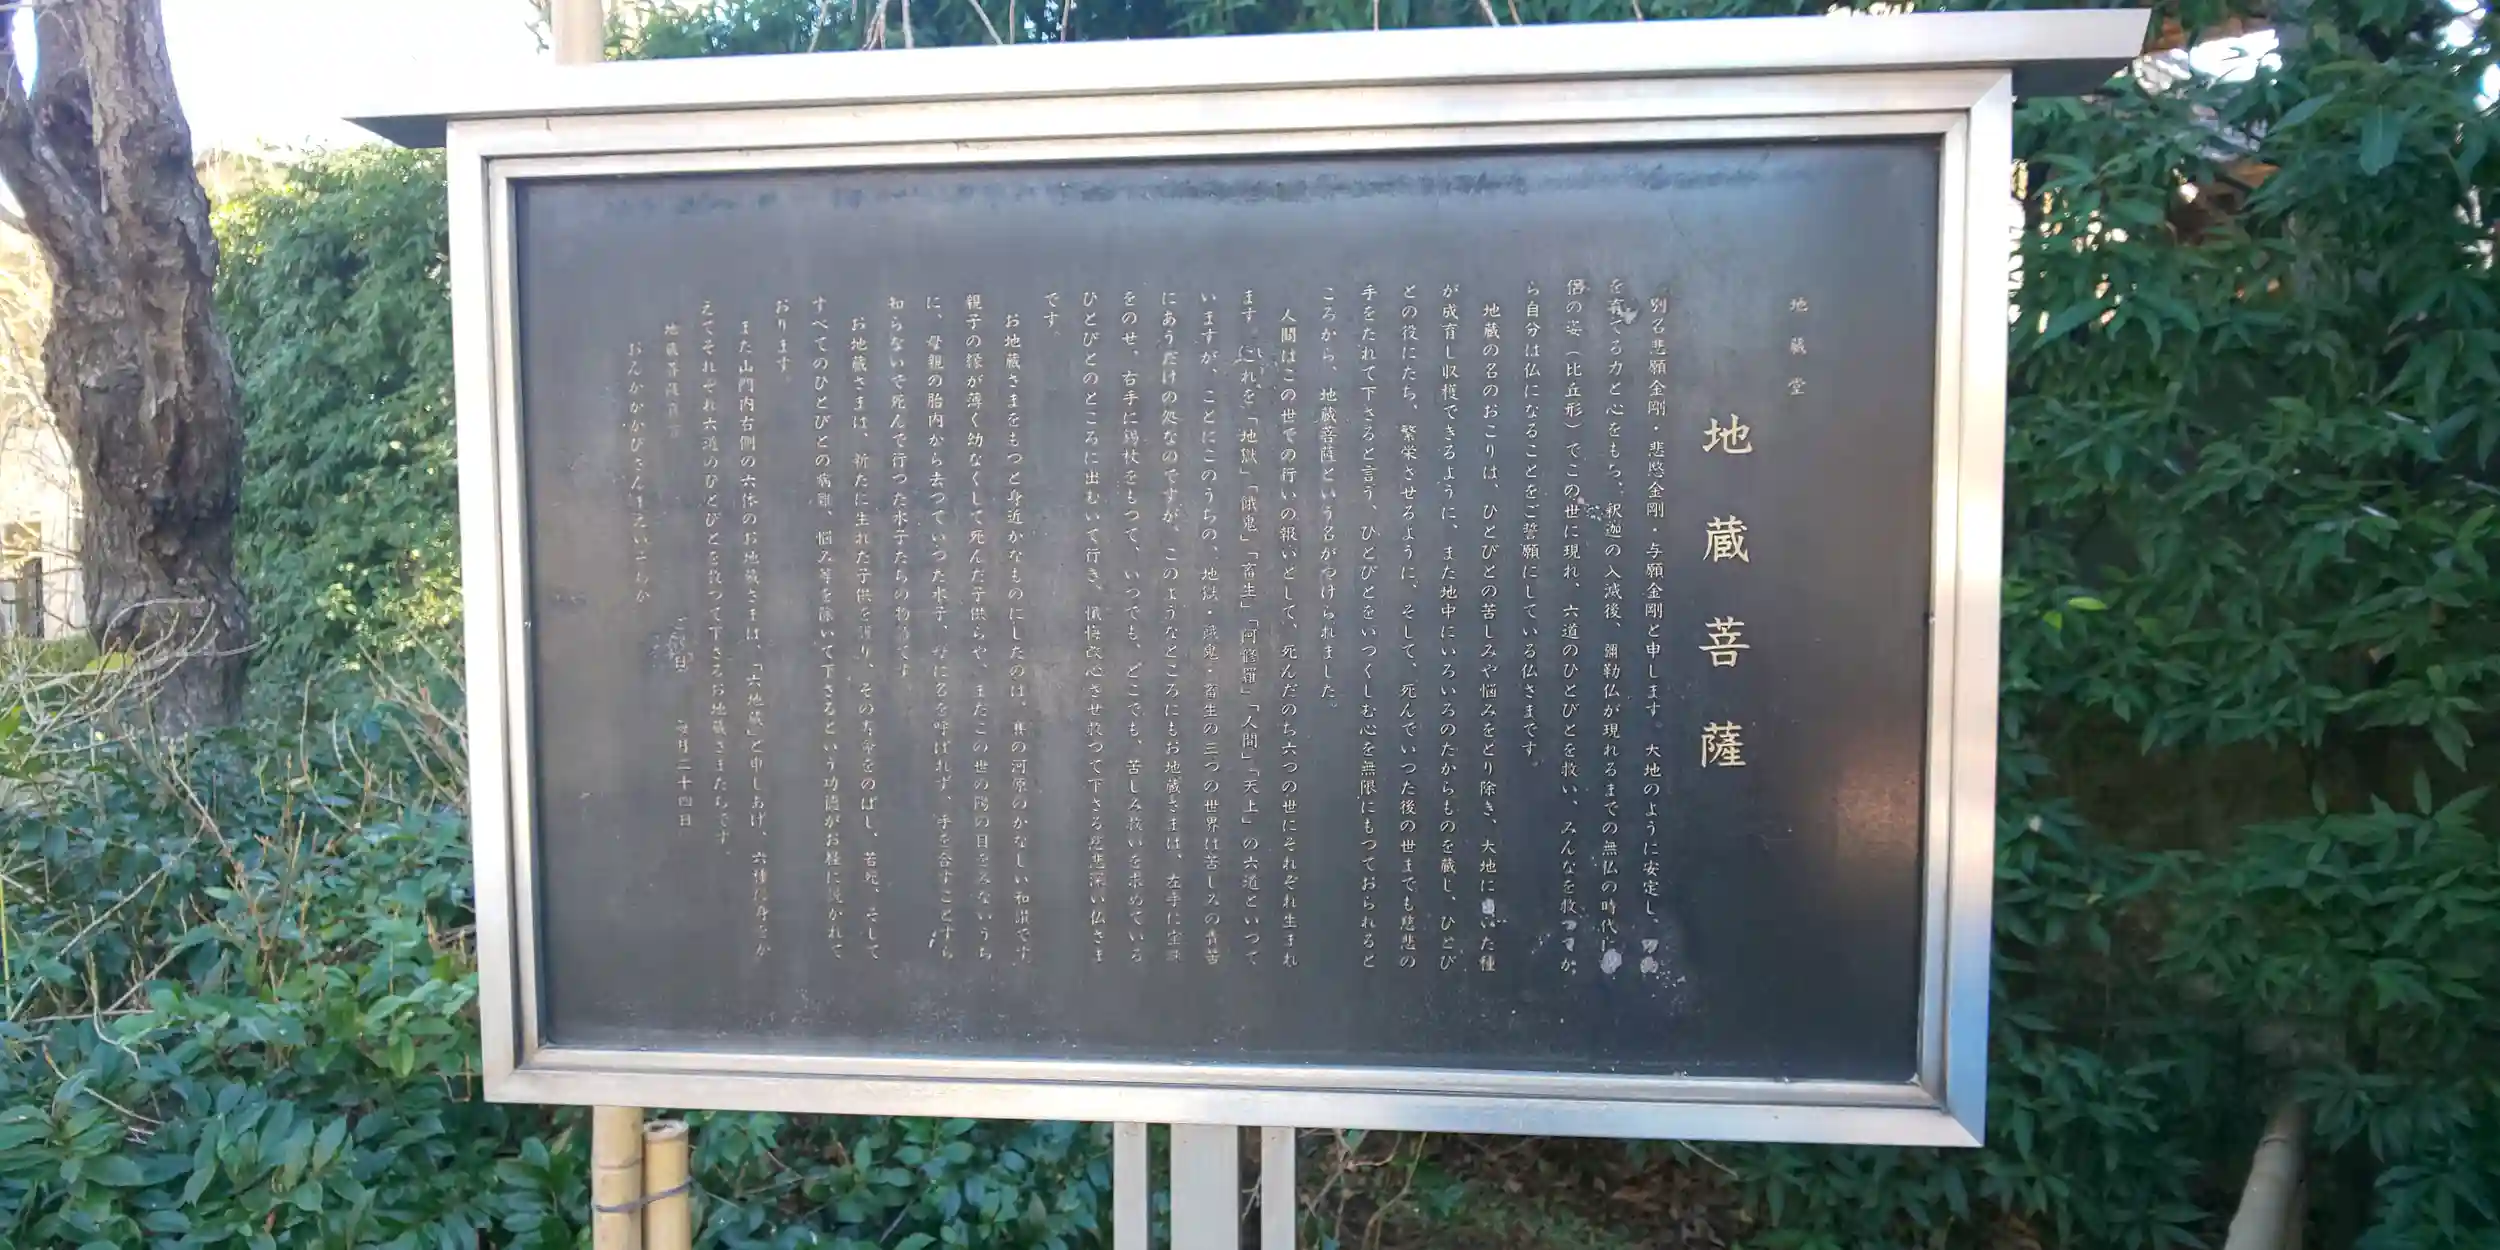 地蔵堂
地蔵菩薩
別名悲願金剛・悲愍金剛・与願金剛と申します。大地のように安定し、万物
を育てる力と心をもち、釈迦の入滅後、彌勒仏が現れるまでの無仏の時代に
僧の姿（比丘形）でこの世に現れ、六道のひとびとを救い、みんなを救つてか
ら自分は仏になることをご誓願にしている仏さまです。
地蔵の名のおこりは、ひとびとの苦しみや悩みをとり除き、大地に蒔いた種
が成育し収穫できるように、また地中にいろいろのたからものを蔵し、ひとび
との役にたち、繁栄させるように、そして、死んでいつた後の世までも慈悲の
手をたれて下さると言う、ひとびとをいつくしむ心を無限にもつておられると
ころから、地蔵菩薩という名がつけられました。
人間はこの世での行いの報いとして、死んだのち六つの世にそれぞれ生まれ
ます。これを「地獄」「餓鬼」「畜生」「阿修羅」「人間」「天上」の六道といつて
いますが、ことにこのうちの、地獄・餓鬼・畜生の三つの世界は苦しみの責苦
にあうだけの処なのですが、このようなところにもお地蔵さまは、左手に宝珠
をのせ、右手に錫杖をもつて、いつでも、どこでも、苦しみ救いを求めている
ひとびとのところに出むいて行き、懺悔改心させ救つて下さる慈悲深い仏さま
です。
お地蔵さまをもつと身近かなものにしたのは、賽の河原のかなしい和讃です。
親子の縁が薄く幼なくして死んだ子供らや、またこの世の陽の目をみないうち
に、母親の胎内から去つていつた水子、母に名を呼ばれず、手を合すことすら
知らないで死んで行つた水子たちの物語です
お地蔵さまは、新たに生れた子供を護り、その寿命をのばし、若死、そして
すべてのひとびとの病難、悩み等を除いて下さるという功徳がお経に説かれて
おります。
また山門内右側の六体のお地蔵さまは、「六地蔵」と申しあげ、六種に身をか
えてそれぞれ六道のひとびとを救つて下さるお地蔵さまたちです。
地蔵菩薩真言
日 毎月二十四日
おんかかかびさんまえいそわか